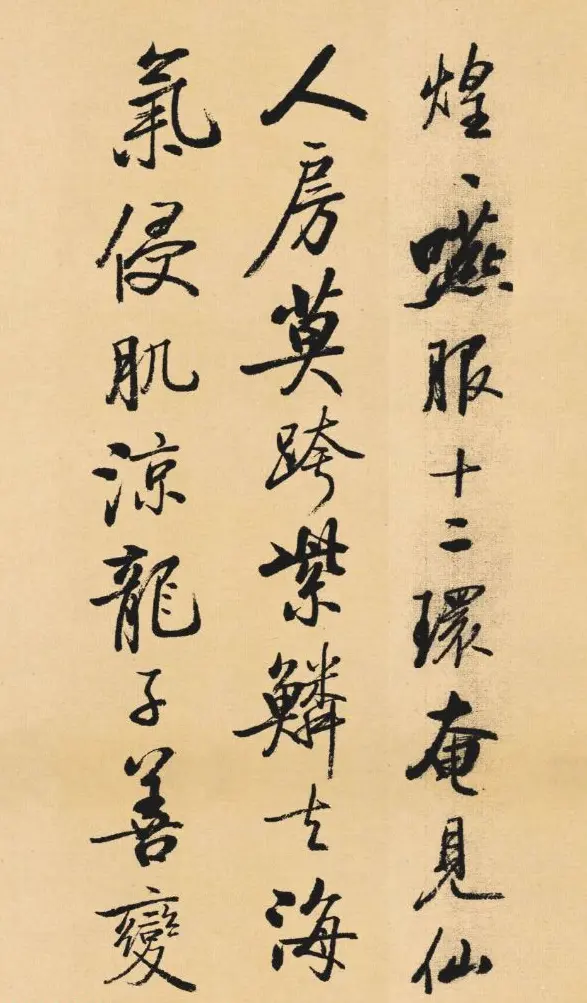 煌、嚥服十二環奄見仙
人房莫跨紫鱗去海
氣侵肌涼龍子善變